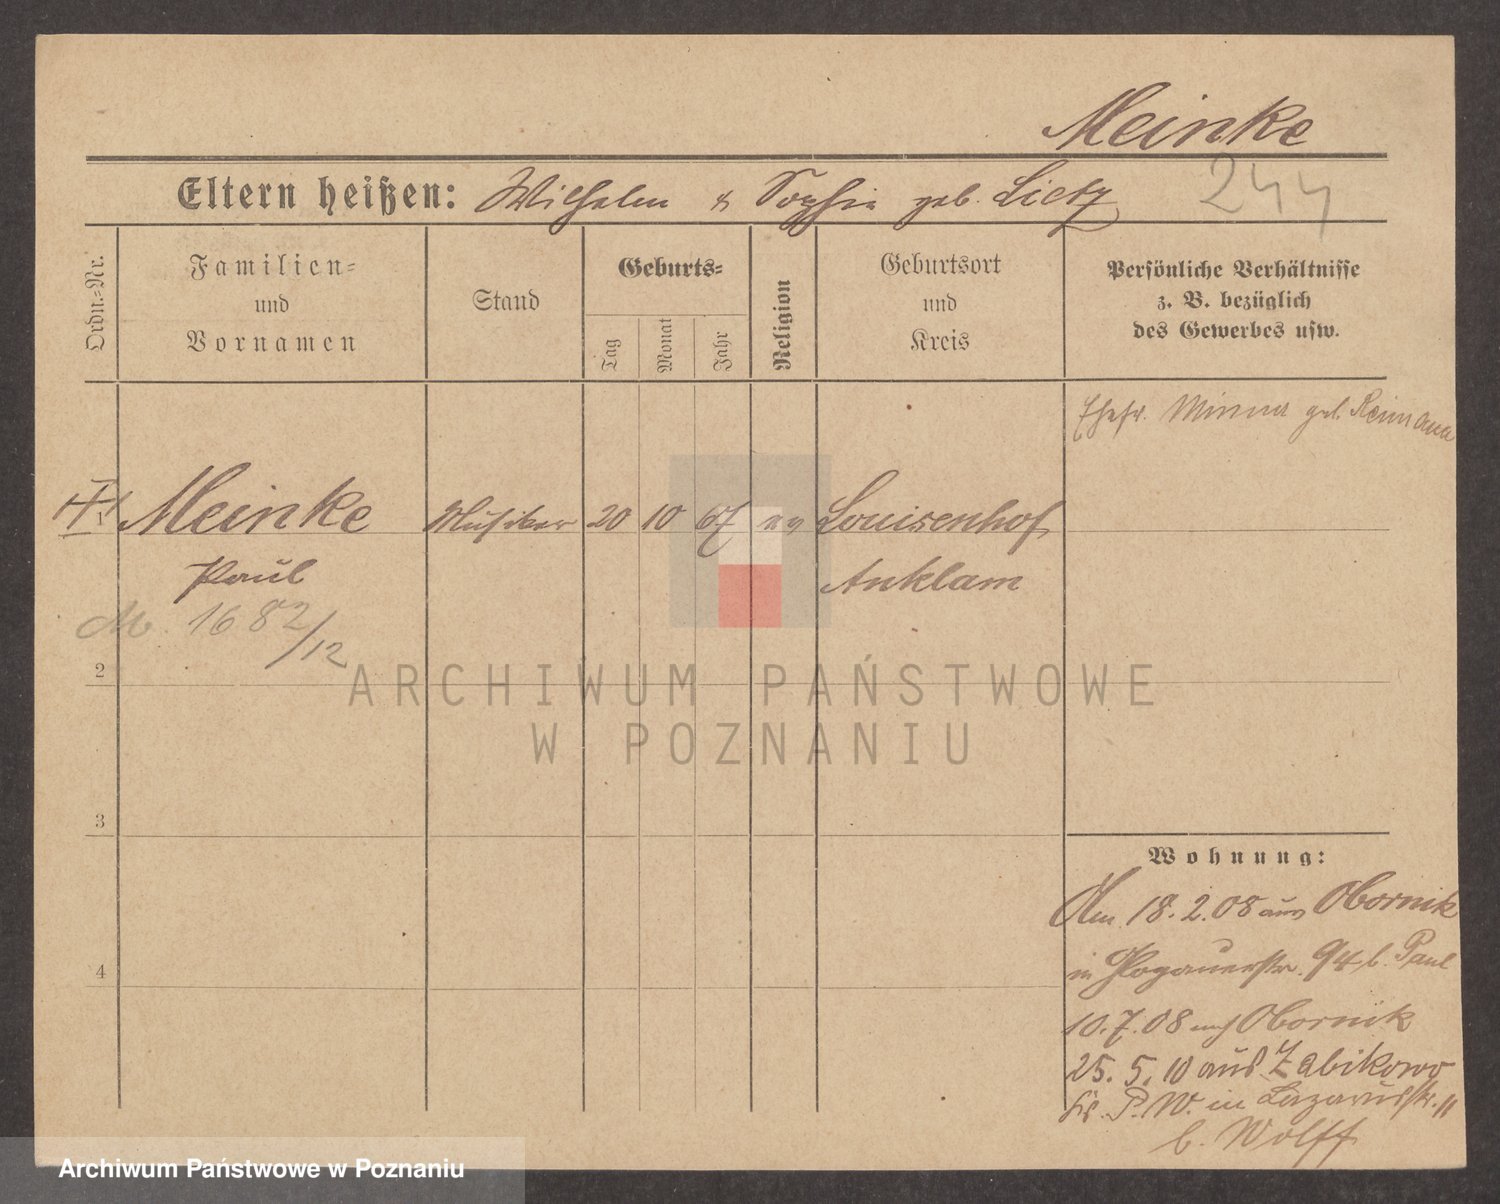 Meinke
Eltern heißen: Wilhelm & Sophie geb. Lietz
244
Ordn.=Nr.
Familien=
und
Vornamen
Stand
Geburts=
Tag
Monat
Jahr
Religion
Geburtsort
und
Kreis
Persönliche Verhältnisse
z. B. bezüglich
des Gewerbes usw.
Ehefr. Minna geb. Reimann
1 Meinke Musiker 20 10 67 ev Louisenhof
Paul Anklam
M 1682/12
2
3
4
ARCHIWUM PAŃSTWOWE
W POZNANIU
Wohnung:
Am 18.2.08 aus Obornik
in Glogauerstr. 94 b. Paul
10.7.08 nach Obornik
25.5.10 aus Zabikowo
Kr. P.W. in Lazarusstr. 11
b. Wolff
Archiwum Państwowe w Poznaniu